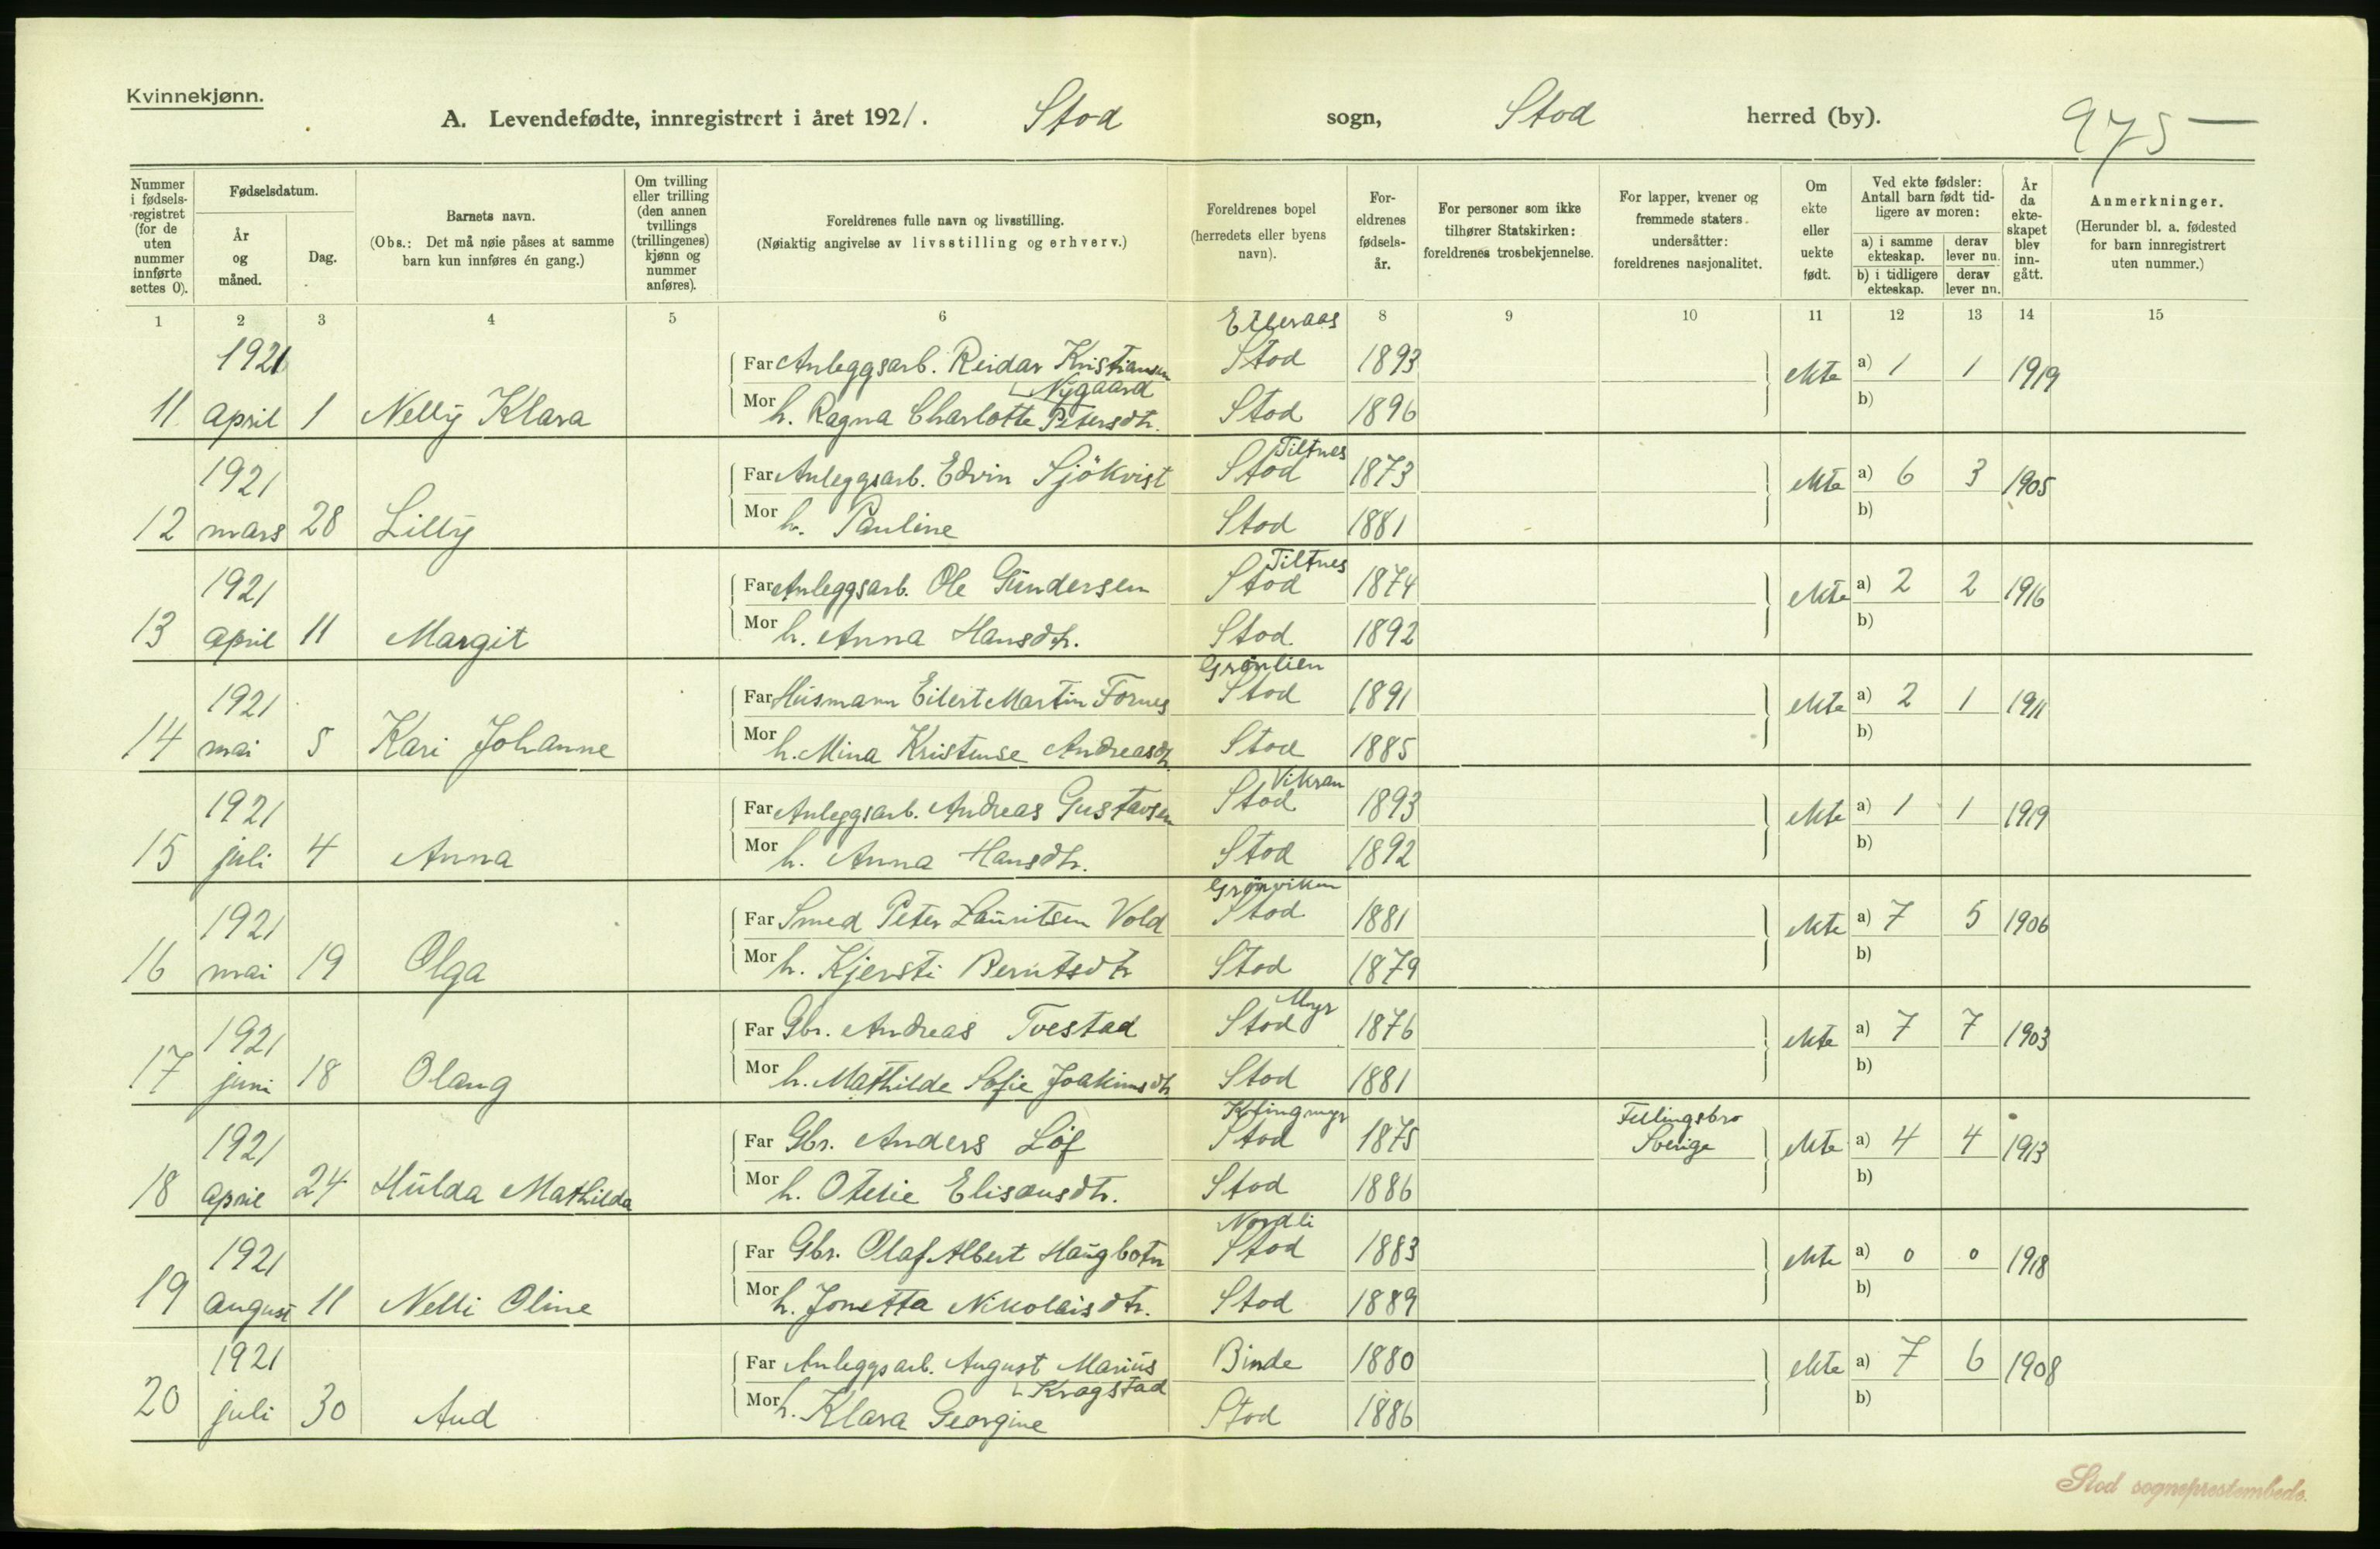 Kvinnekjønn.
A. Levendefødte, innregistrert i året 1921. Stod sogn, Stod herred (by). 975 —
Nummer i fødsels-registret (for de uten nummer innførte settes 0).
Fødselsdatum.
År og måned.
Dag.
Barnets navn.
(Obs.: Det må nøie påses at samme barn kun innføres én gang.)
Om tvilling eller trilling (den annen tvillings (trillingenes) kjønn og nummer anføres).
Foreldrenes fulle navn og livsstilling.
(Nøiaktig angivelse av livsstilling og erhverv.)
Foreldrenes bopel (herredets eller byens navn).
For-eldrenes fødsels-år.
For personer som ikke tilhører Statskirken: foreldrenes trosbekjennelse.
For lapper, kvener og fremmede staters undersåtter: foreldrenes nasjonalitet.
Om ekte eller uekte født.
Ved ekte fødsler: Antall barn født tid-ligere av moren:
a) i samme ekteskap. derav lever nu.
b) i tidligere ekteskap. derav lever nu.
År da ekte-skapet blev inn-gått.
Anmerkninger.
(Herunder bl. a. fødested for barn innregistrert uten nummer.)
1 2 3 4 5 6 8 9 10 11 12 13 14 15
1921 Far Anleggsarb. Reidar Kristiansen Nygaard Stod 1893 ekte a) 1 1 1919
11 april 1 Nelly Klara Mor h. Ragna Charlotte Petersdtr. Stod 1896 b)
Tiltnes
1921 Far Anleggsarb. Edvin Sjökvist Stod 1873 ekte a) 6 3 1905
12 mars 28 Lilly Mor h. Pauline Stod 1881 b)
Tiltnes
1921 Far Anleggsarb. Ole Gundersen Stod 1874 ekte a) 2 2 1916
13 april 11 Margit Mor h. Anna Hansdtr. Stod 1892 b)
Grønlien
1921 Far Husmann Eilert Martin Fornes Stod 1891 ekte a) 2 1 1911
14 mai 5 Kari Johanne Mor h. Mina Kristense Andreasdtr. Stod 1885 b)
Vikran
1921 Far Anleggsarb. Andreas Gustavsen Stod 1893 ekte a) 1 1 1919
15 juli 4 Anna Mor h. Anna Hansdtr. Stod 1892 b)
Grønviken
1921 Far Smed Peter Lauritsen Vold Stod 1881 ekte a) 7 5 1906
16 mai 19 Olga Mor h. Kjersti Berntsdtr Stod 1879 b)
Myr
1921 Far Gbr. Andreas Tvestad Stod 1876 ekte a) 7 7 1903
17 juni 18 Olaug Mor h. Mathilde Sofie Joakimsdtr Stod 1881 b)
1921 Far Gbr. Anders Löf Stod 1875 Fellingsbro Sverige ekte a) 4 4 1913
18 april 24 Hulda Mathilda Mor h. Otelie Elisausdtr. Stod 1886 b)
Nordli
1921 Far Gbr. Olaf Albert Haugbotn Stod 1883 ekte a) 0 0 1918
19 august 11 Nelli Oline Mor h. Jonetta Nikolaisdtr. Stod 1889 b)
1921 Far Anleggsarb. August Marius Kragstad Binde 1880 ekte a) 7 6 1908
20 juli 30 Aud Mor h. Klara Georgine Stod 1886 b)
Stod sogneprestembede.